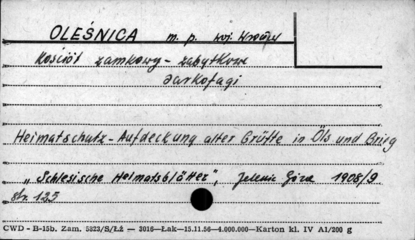 OLEŚNICA m. p. woj. Wrocław
Kościół zamkowy - zabytkowe
sarkofagi
Heimatschutz - Aufdeckung alter Grüfte in Öls und Brieg
„Schlesische Heimatsblätter", Jelenia Góra 1908/9
str. 125
CWD - B-15b. Zam. 5823/S/Łż — 3016—Łak—15.11.56—4.000.000—Karton kl. IV A1/200 g